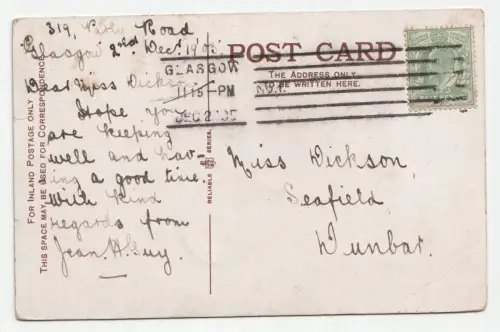 319, Road
Glasgow 2nd Dec. 1905
Dear Miss Dickson
Hope you
are keeping
well and hav-
ing a good time.
With kind
regards from
Jean H. Guy.
FOR INLAND POSTAGE ONLY
THIS SPACE MAY BE USED FOR CORRESPONDENCE
RELIABLE SERIES.
POST CARD
THE ADDRESS ONLY
BE WRITTEN HERE.
GLASGOW
1115-PM
DEC 2 05
Miss Dickson,
Seafield,
Dunbar.